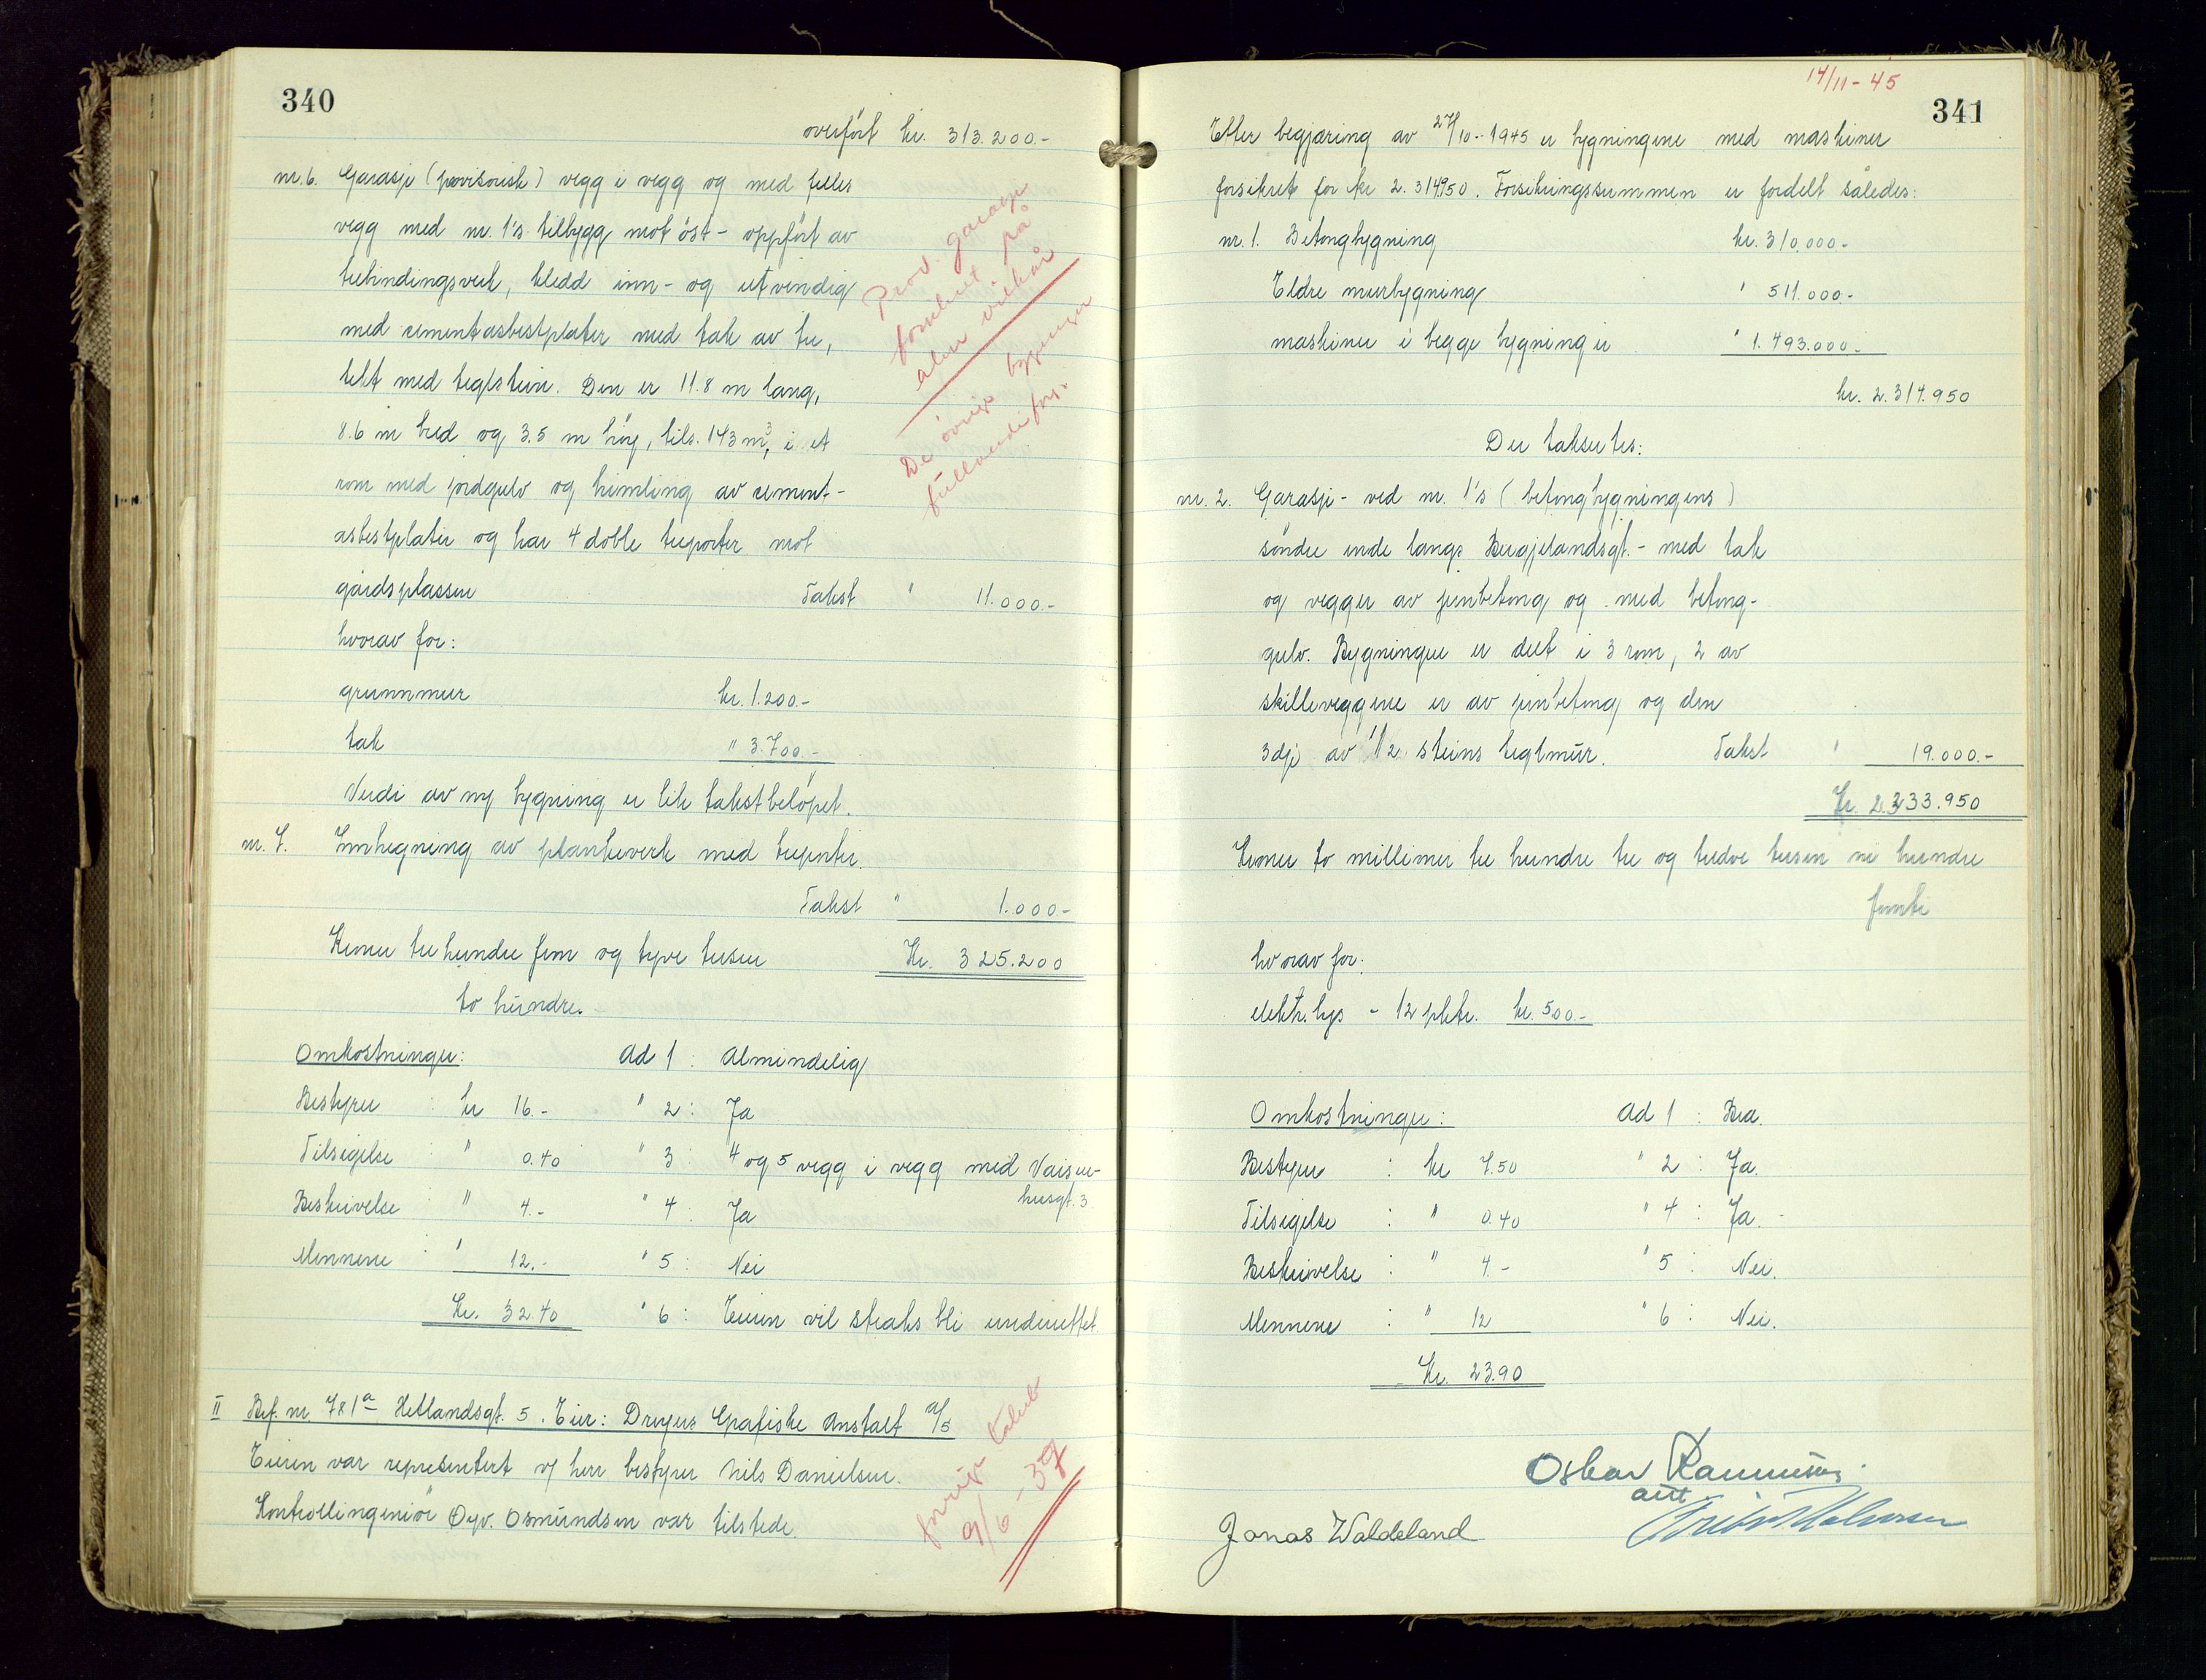 340
overført kr. 313.200.-
nr. 6. Garasje (provisorisk) vegg i vegg og med felles
vegg med nr. 1's tilbygg mot öst - oppfört av
trebindingsverk, kledd inn- og utvendig
med cementasbestplater med tak av tre,
tekt med teglstein. Den er 11.8 m lang,
8.6 m bred og 3.5 m höy, tils. 143 m³, i et
rom med jordgulv og himling av cement-
asbestplater og har 4 doble treporter mot
gårdsplassen Takst " 11.000.-
hvorav for:
grunnmur kr. 1.200.-
tak " 3.700.-
Verdi av ny bygning er lik takstbelöpet.
nr. 7. Innhegning av plankeverk med treporter.
Takst " 1.000-
Kroner tre hundre fem og tyve tusen Kr. 325.200
to hundre.
Prov. garasje
forsikret på
alm vilkår
De övrige bygninger
fullverdifors.
Omkostninger: Ad 1 : Almindelig
Bestyrer : kr 16.- " 2 : Ja
Tilsigelse " 0.40 " 3 : 4 og 5 vegg i vegg med Vaisen-
husgt. 3
Beskrivelse : " 4.- " 4 : Ja
Mennene : " 12.- " 5 : Nei
Kr. 32.40 " 6 : Eieren vil straks bli underrettet.
II Brf. nr. 781ª Hetlandsgt. 5. Eier: Dreyers Grafiske Anstalt A/S
Eieren var representert v/ herr bestyrer Nils Danielsen.
Kontrollingeniör Öyv. Osmundsen var tilstede.
forrige takst
9/6 - 39
14/11 - 45
341
Etter begjæring av 27/10 - 1945 er bygningene med maskiner
forsikret for kr 2.314950. Forsikringssummen er fordelt således:
nr. 1. Betongbygning kr. 310.000.-
Eldre murbygning " 511.000.-
maskiner i begge bygninger " 1.493.000.-
kr. 2.314.950
Der takseres:
nr. 2. Garasje - ved nr. 1's (betongbygningens)
söndre ende langs Bergjelandsgt. - med tak
og vegger av jernbetong og med betong-
gulv. Bygningen er delt i 3 rom, 2 av
skilleveggene er av jernbetong og den
3dje av 1/2 steins teglmur. Takst " 19.000.-
Kr. 2.333.950
Kroner to millioner tre hundre tre og tredve tusen ni hundre
femti
hvorav for:
elektr. lys - 12 pkte. kr. 500.-
Omkostninger : Ad 1 : Bra.
Bestyrer : kr 7.50 " 2 : Ja.
Tilsigelse : " 0.40 " 4 : Ja.
Beskrivelse : " 4.- " 5 : Nei.
Mennene : " 12 " 6 : Nei.
Kr. 23.90
Oskar Rasmussen
Jonas Waldeland